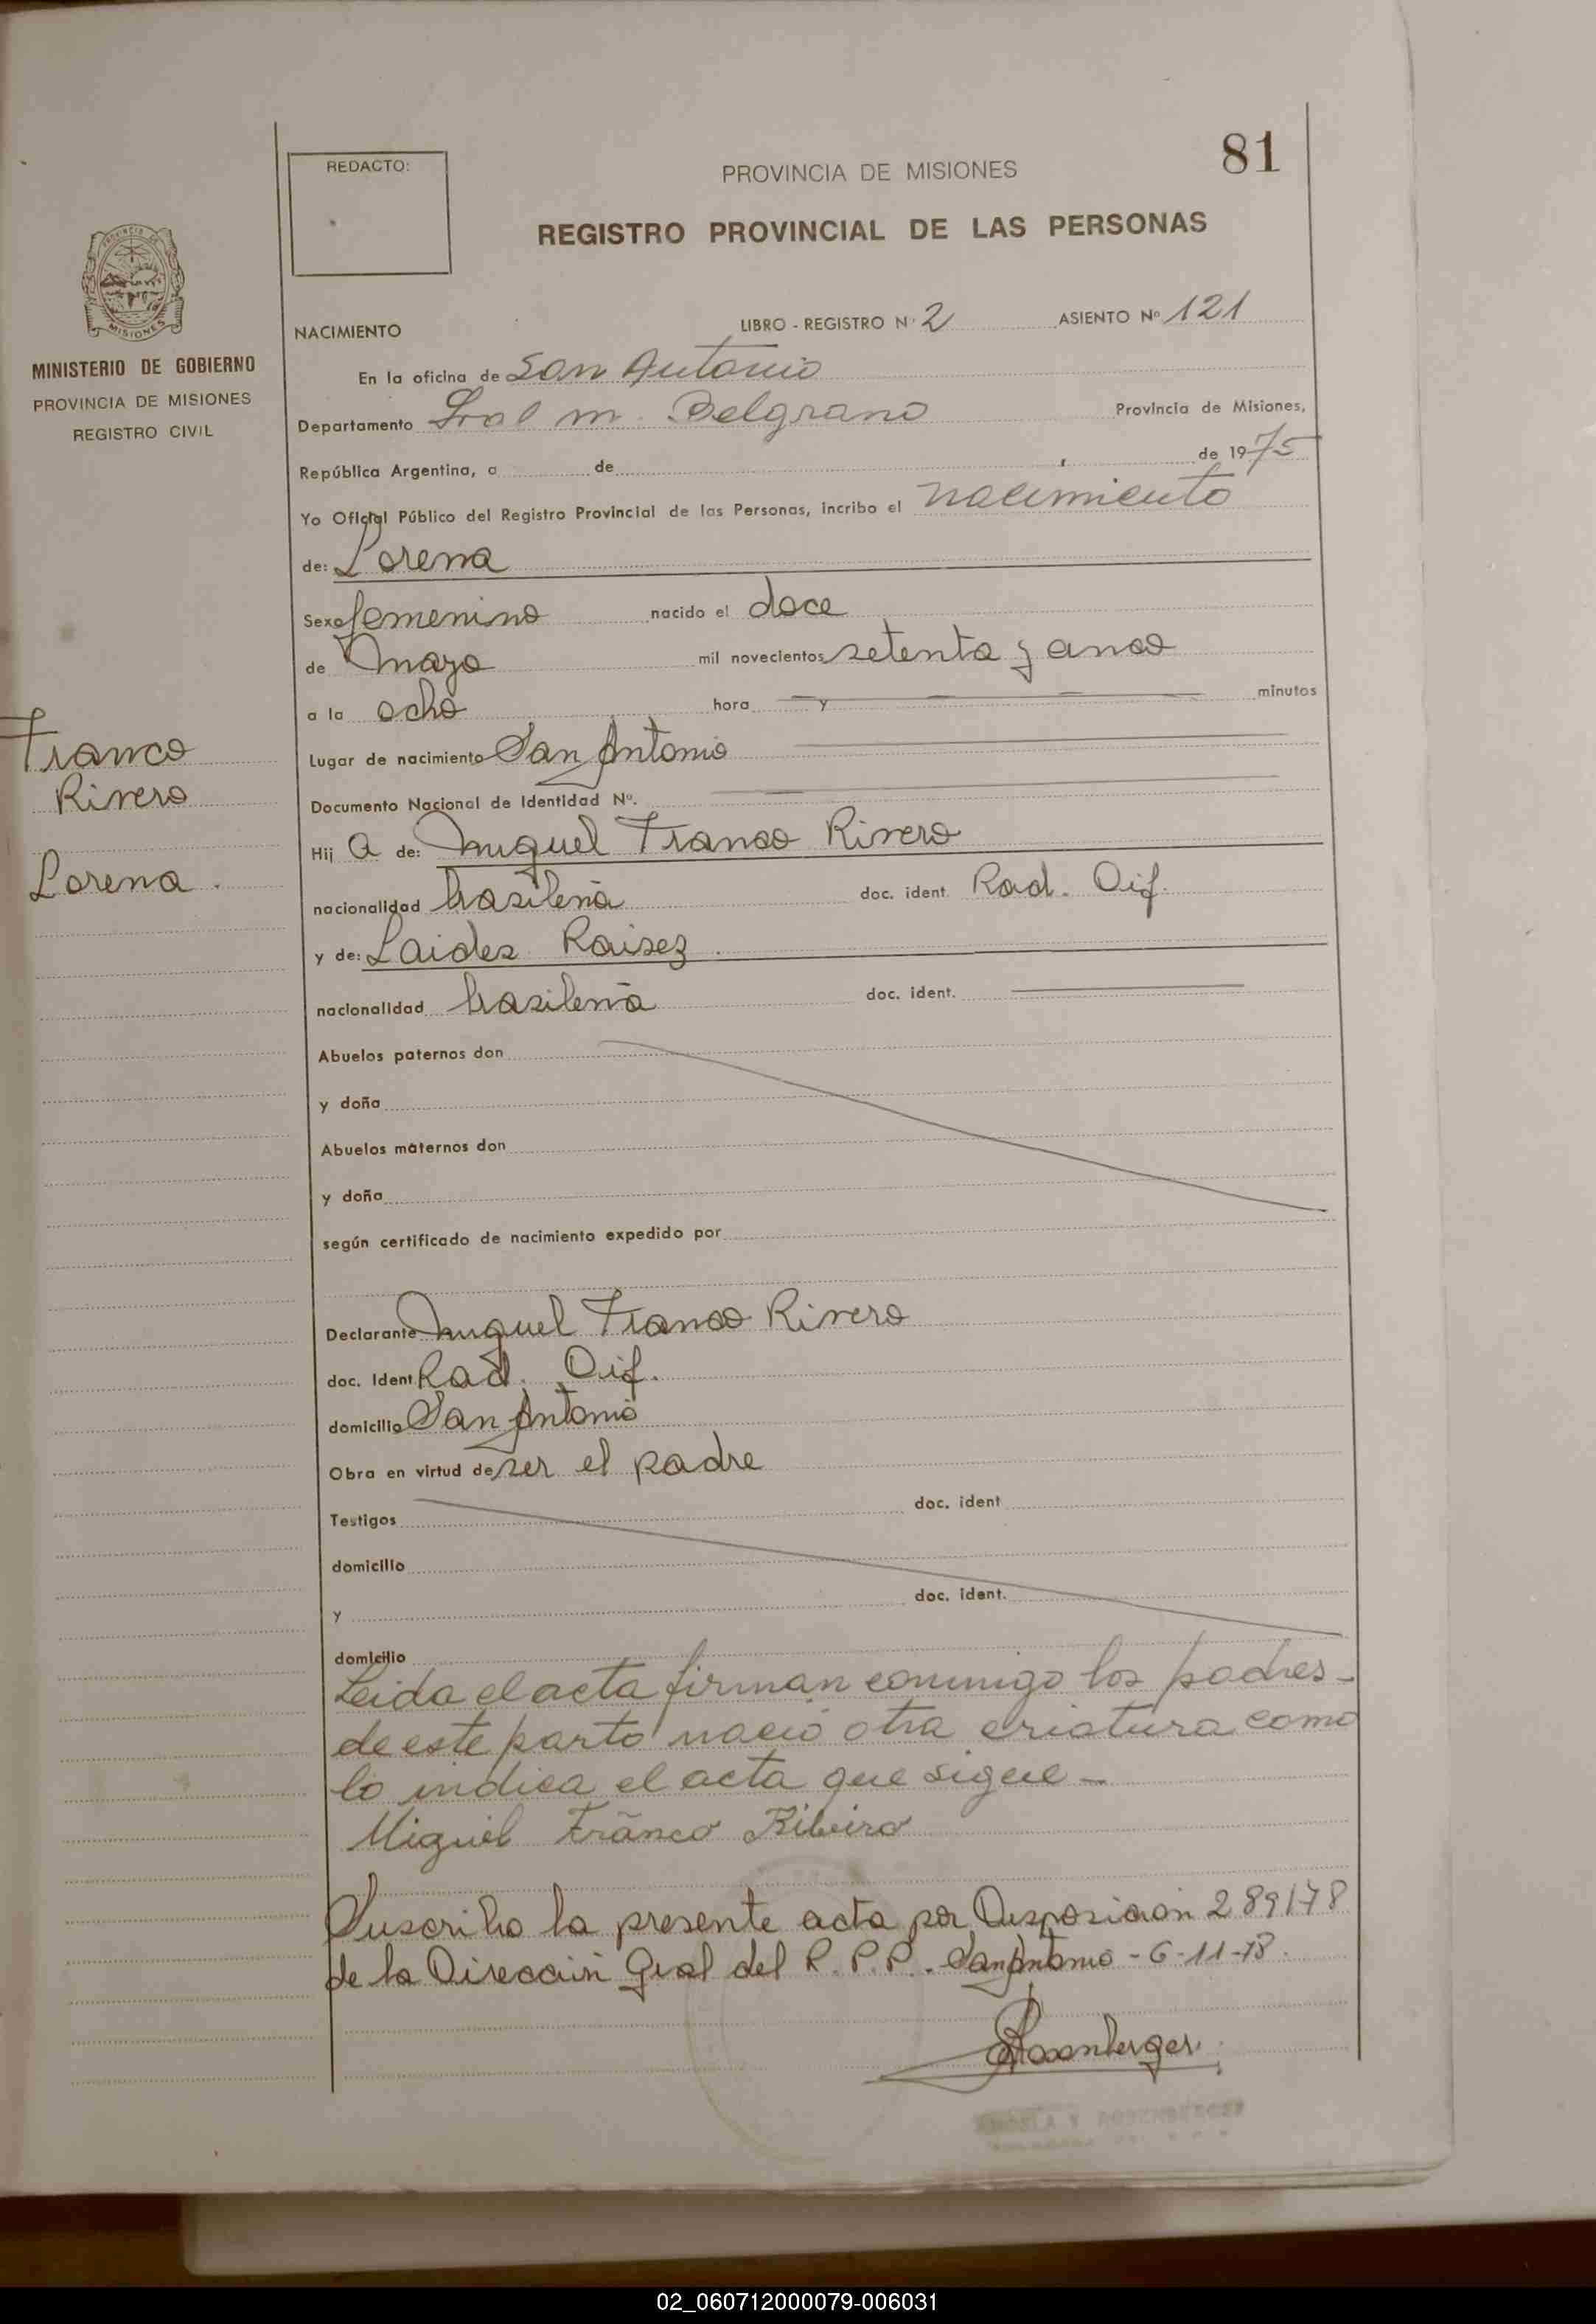 81
REDACTO:
PROVINCIA DE MISIONES
REGISTRO PROVINCIAL DE LAS PERSONAS
MISIONES
MINISTERIO DE GOBIERNO
PROVINCIA DE MISIONES
REGISTRO CIVIL
NACIMIENTO LIBRO - REGISTRO Nº 2 ASIENTO Nº 121
En la oficina de San Antonio
Departamento Gral M. Belgrano Provincia de Misiones,
República Argentina, a de , de 1975
Yo Oficial Público del Registro Provincial de las Personas, incribo el nacimiento
de: Lorena
Sexo femenino nacido el doce
de Mayo mil novecientos setenta y cinco
a la ocho hora y minutos
Lugar de nacimiento San Antonio
Documento Nacional de Identidad Nº.
Franco
Rivero
Lorena.
Hij a de: Miguel Franco Rivero
nacionalidad brasileña doc. ident. Rad. Dif.
y de: Laides Raisez.
nacionalidad brasileña doc. ident.
Abuelos paternos don
y doña
Abuelos maternos don
y doña
según certificado de nacimiento expedido por
Declarante Miguel Franco Rivero
doc. Ident. Rad. Dif.
domicilio San Antonio
Obra en virtud de ser el padre
Testigos doc. ident
domicilio
y doc. ident.
domicilio
Leida el acta firman conmigo los padres-
de este parto nació otra criatura como
lo indica el acta que sigue-
Miguel Franco Ribeiro
Suscribo la presente acta por Disposición 289178
de la Dirección Gral del R. P. P. San Antonio - 6-11-78.
Rosenberger
ROSENBERGER
02_060712000079-006031